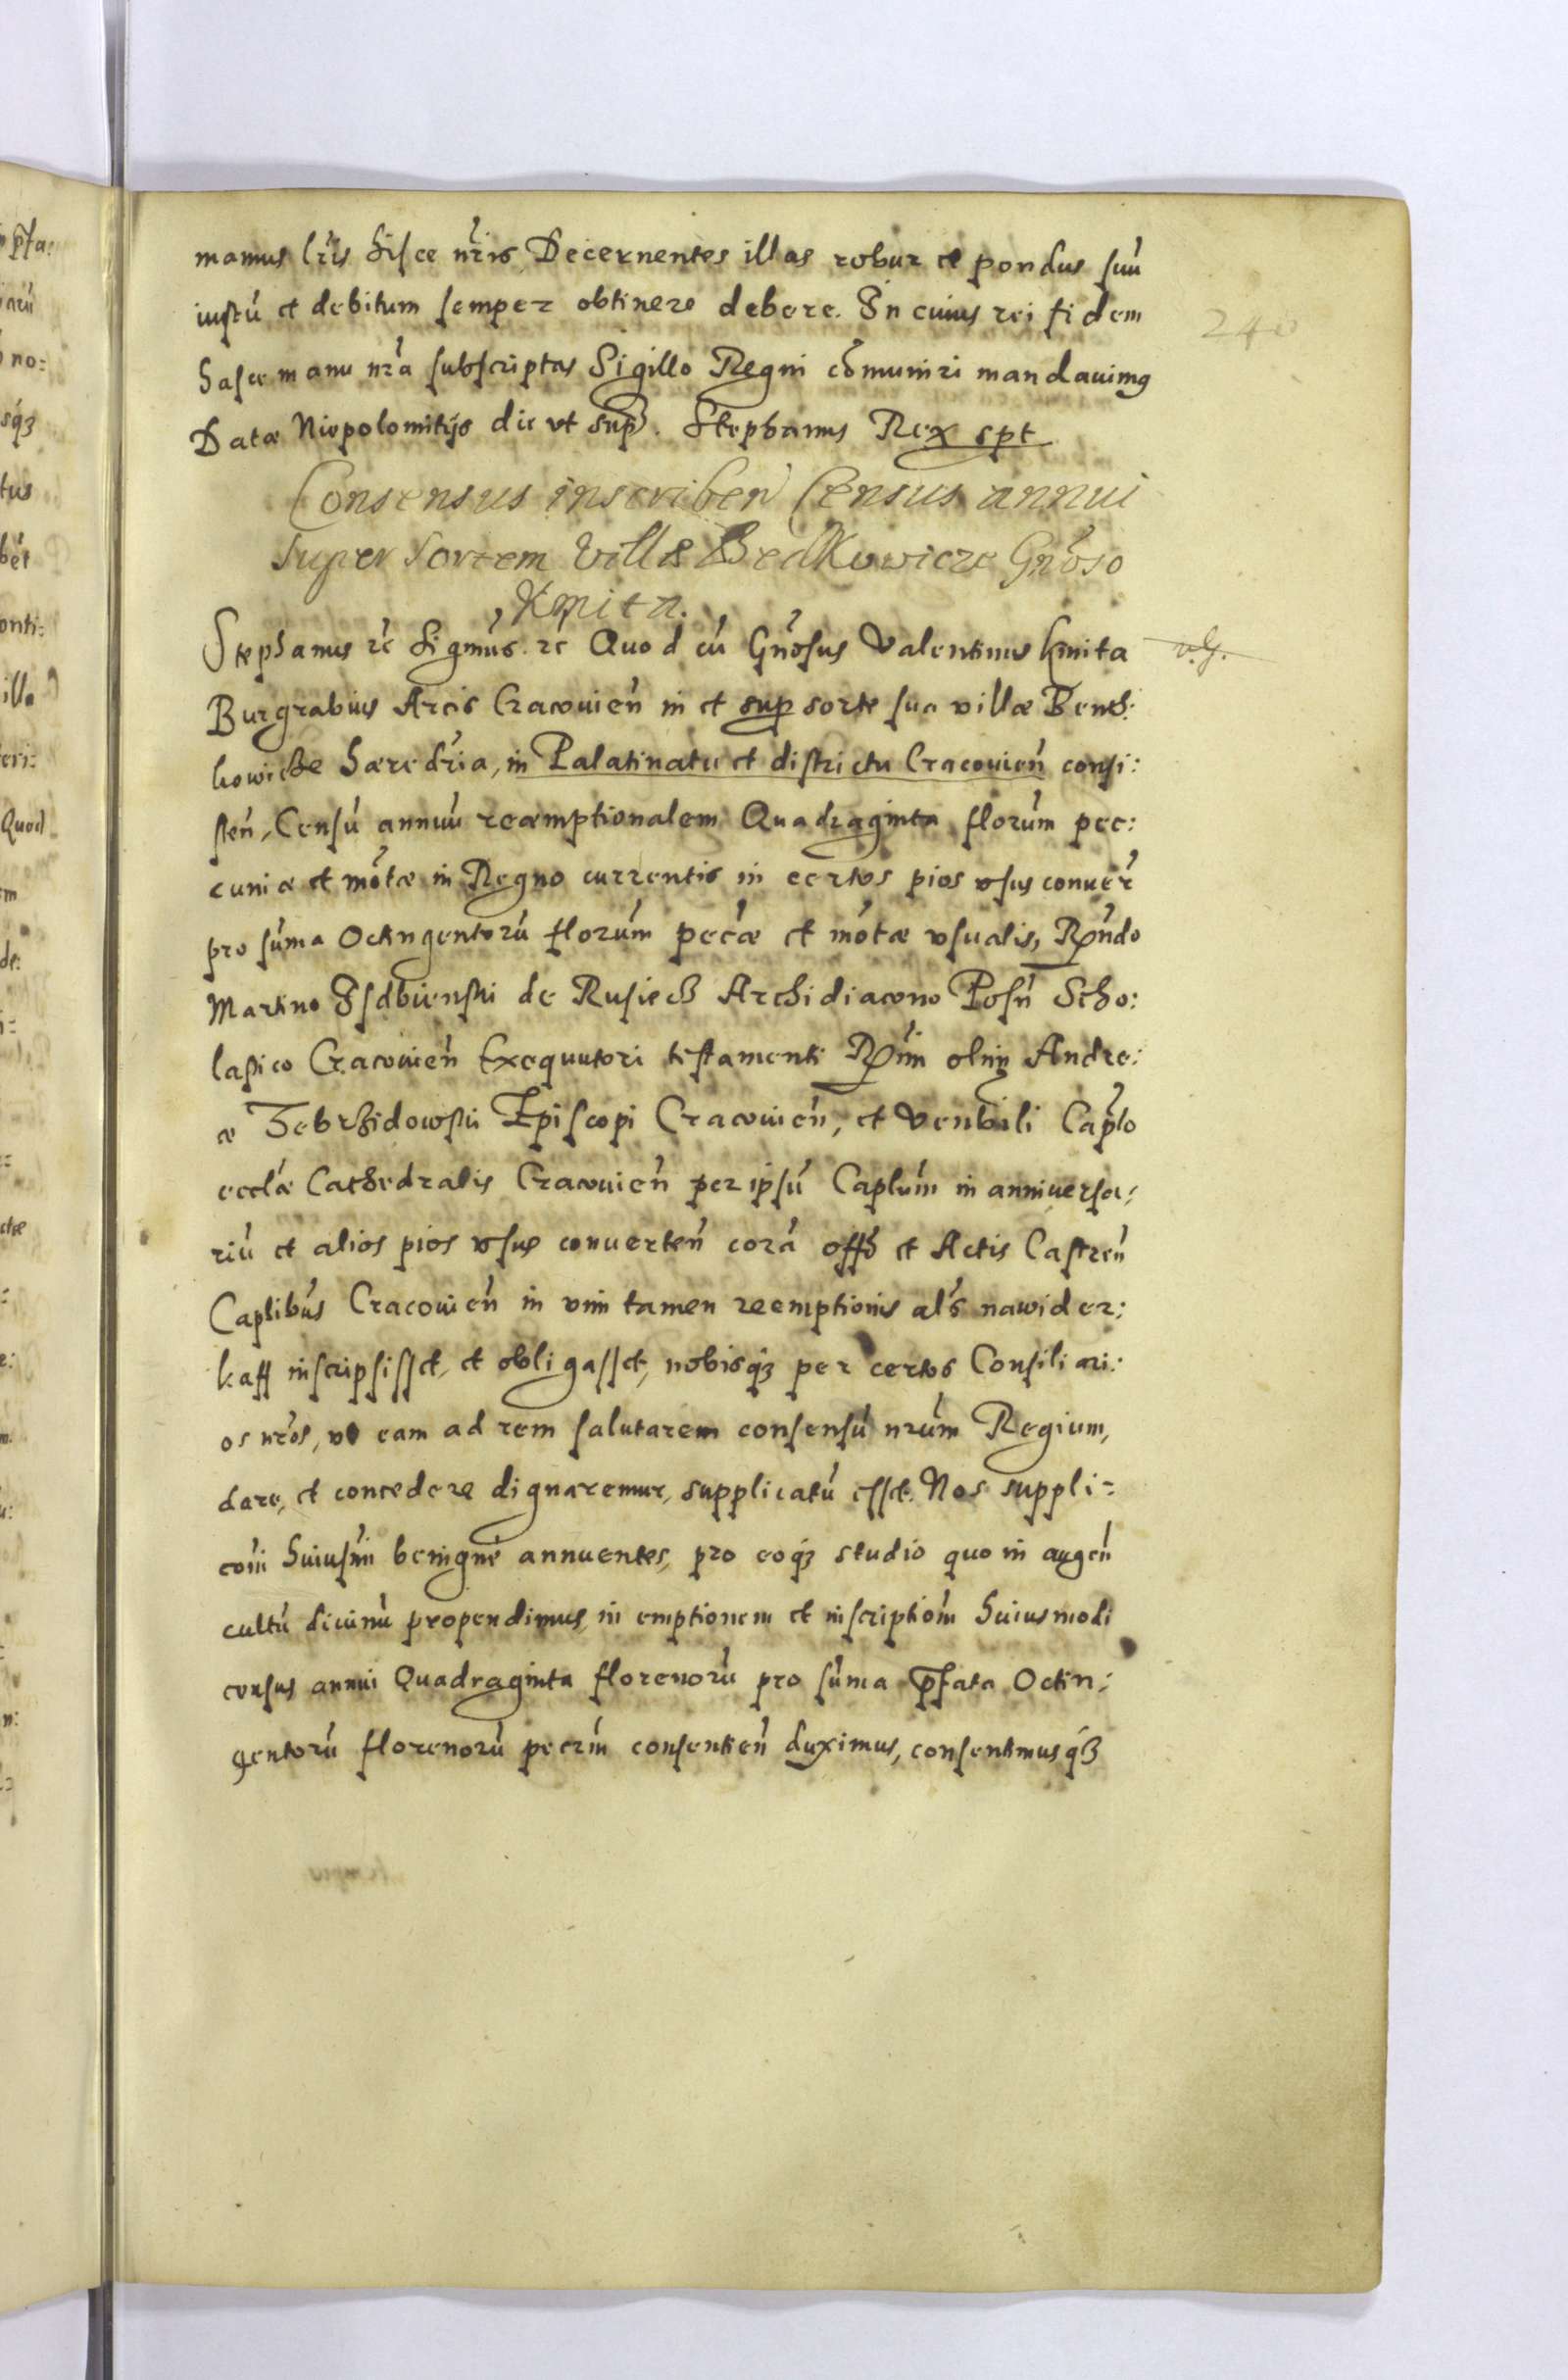 mamus lr̃is hisce nr̃is Decernentes illas robur et pondus suũ
iustũ et debitum semper obtinere debere. In cuius rei fidem
240
hasce manu nr̃a subscriptas Sigillo Regni cõmuniri mandauimus
Datæ Niepolomitijs die vt sup. Stephanus Rex spt
Consensus inscriben̄ Census annui
super sortem Villæ Bedkowicze Gñoso
Kmita.
Stephanus rc̃ Sigm̃us rc̃ Quod cũ Gñosus Valentinus kmita
v.G.
Burgrabius Arcis Cracouien̄ in et sup sorte sua villæ Bend:
kowicze hæredr̃ia, in Palatinatu et districtu Cracouien̄ consi:
sten̄, Censũ annuũ reæmptionalem Quadraginta florum̃ pec:
cuniæ et mõtæ in Regno currentis in certos pios vsus conuer̃
pro sũma Octingentorũ florum̃ pec̃æ et mõtæ vsualis, Rṽndo
Martino Isdbienski de Rusiecz Archidiacono Posn̄ Scho:
lastico Cracouien̄ Exequutori testamenti Rṽm̃ olim Andre:
æ Zebrzidowski Episcopi Cracouien̄, et Venb̃ili Cap̃lo
eccl̃æ Cathedralis Cracouien̄ per ipsũ Caplum̃ in anniuersa:
riũ et alios pios vsus conuerten̄ corã offõ et Actis Castren̄
Caplib̃us Cracouien̄ in vim tamen reemptionis al̃s nawider:
kaff inscripsisset, et obligasset, nobisqȝ per certos Consiliari:
os nr̃os, vt eam ad rem salutarem consensũ nrum̃ Regium,
dare, et concedere dignaremur, supplicatũ esset. Nos suppli=
com̃ huiusm̃i benignè annuentes, pro eoqȝ studio quo in augen̄
cultũ diuinũ propendimus, in emptionem et inscriptiom̃ huiusmodi
census annui Quadraginta florenorũ pro sũma p̃fata Octin:
gentorũ florenorũ pecrim̃ consentien̄ duximus, consentimusqȝ